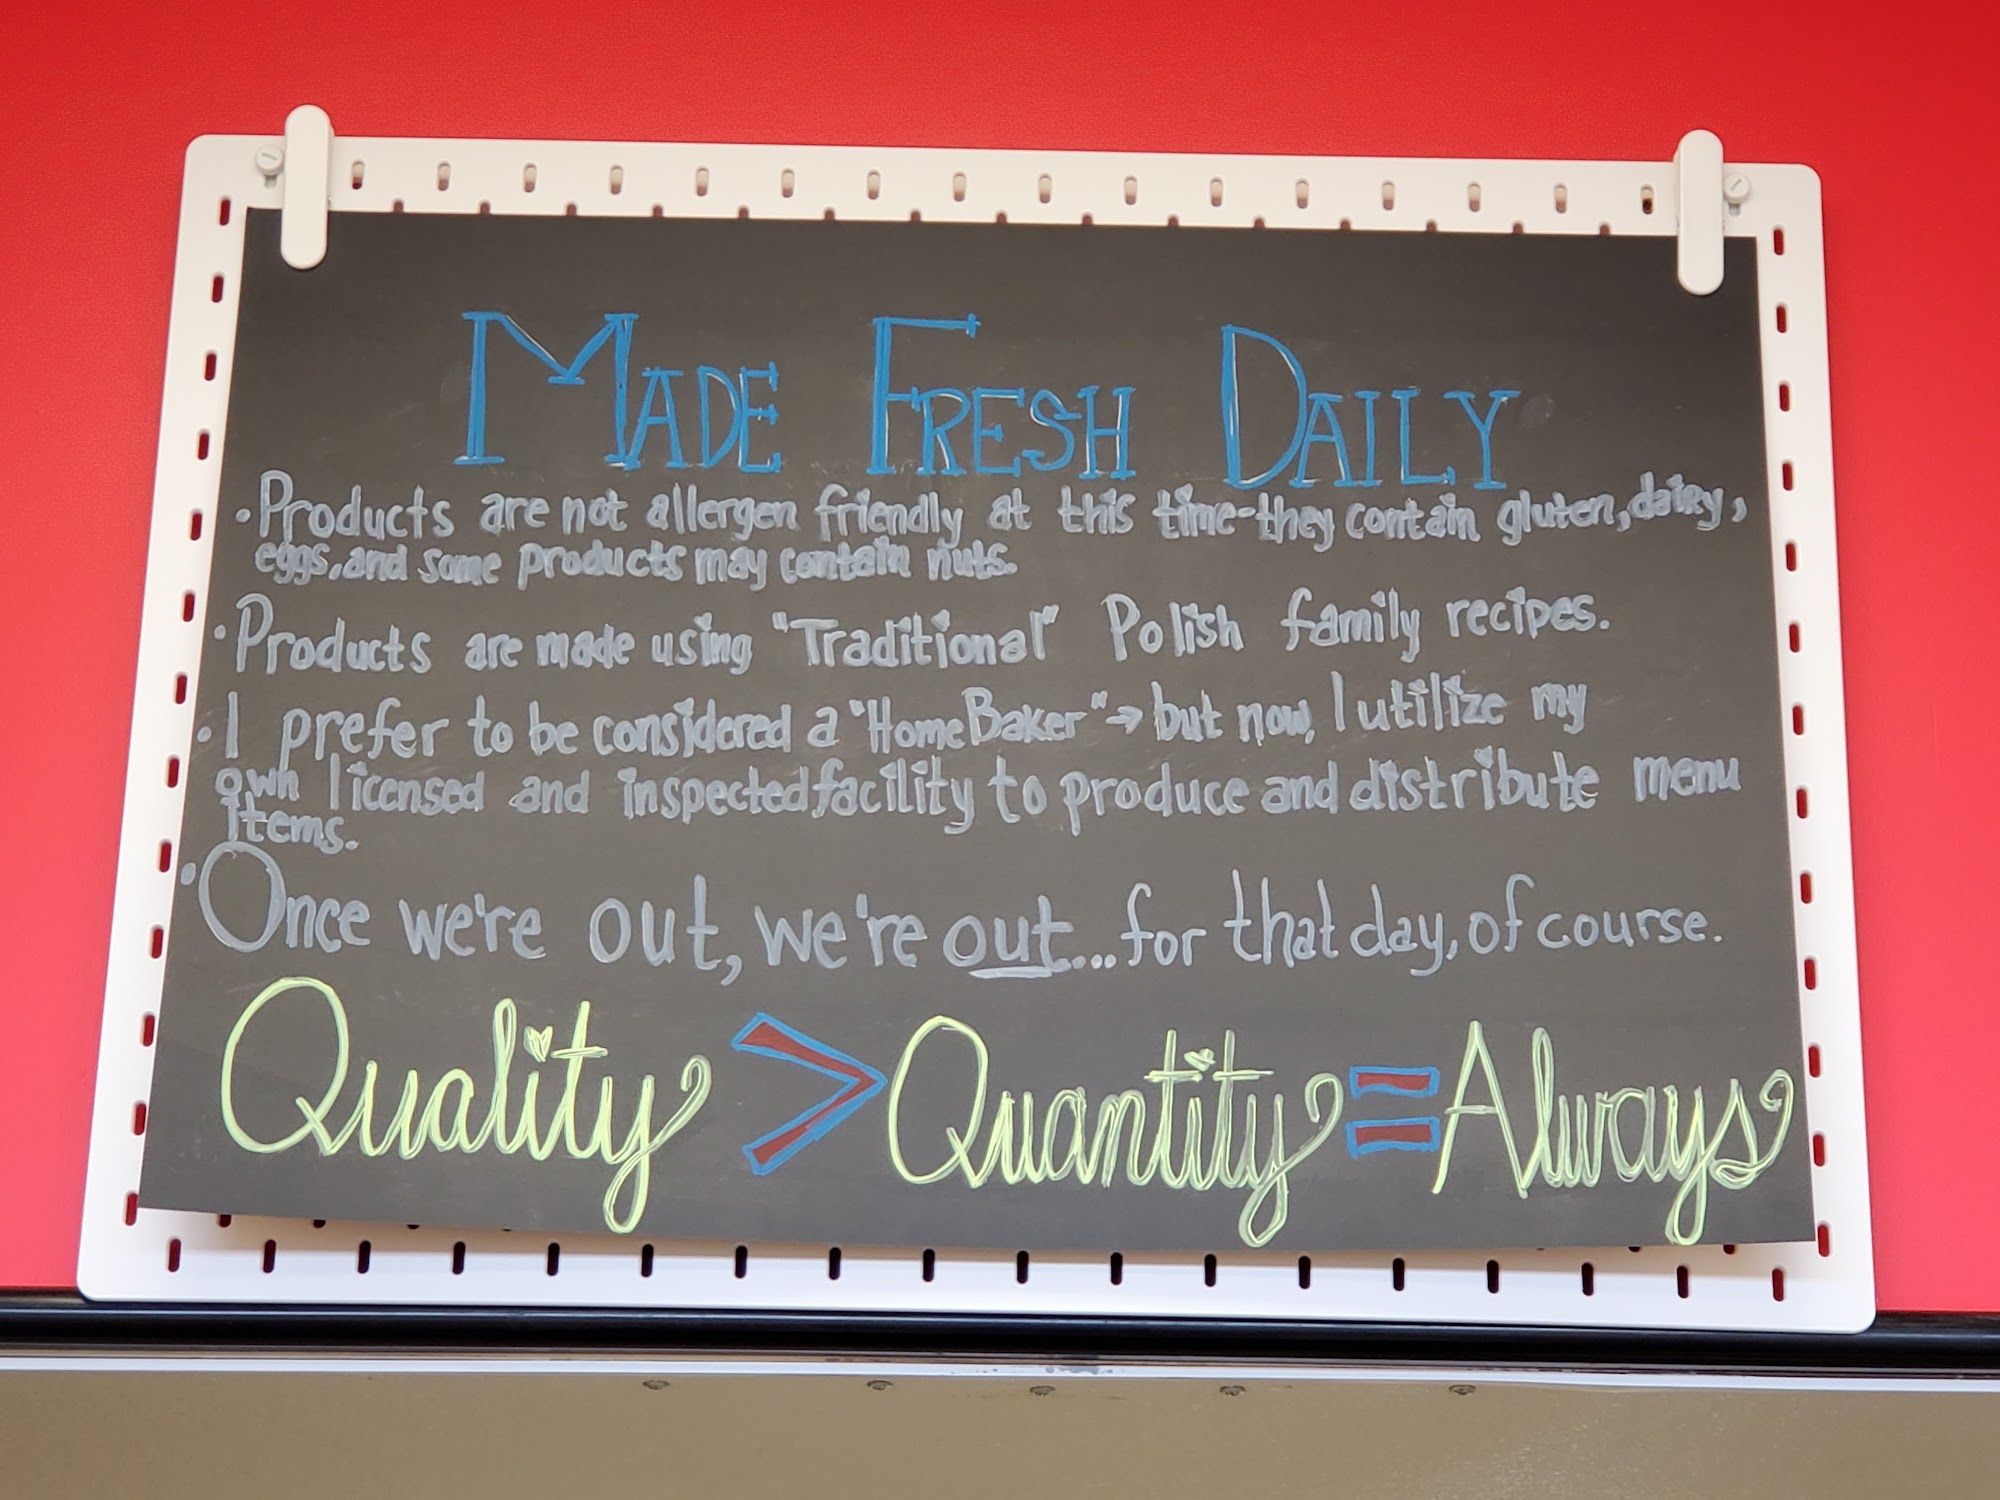 MADE FRESH DAILY
• Products are not allergen friendly at this time-they contain gluten, dairy,
eggs, and some products may contain nuts.
• Products are made using "Traditional" Polish family recipes.
• I prefer to be considered a "Home Baker" → but now, I utilize my
own licensed and inspected facility to produce and distribute menu
items.
• Once we're out, we're out... for that day, of course.
Quality > Quantity = Always